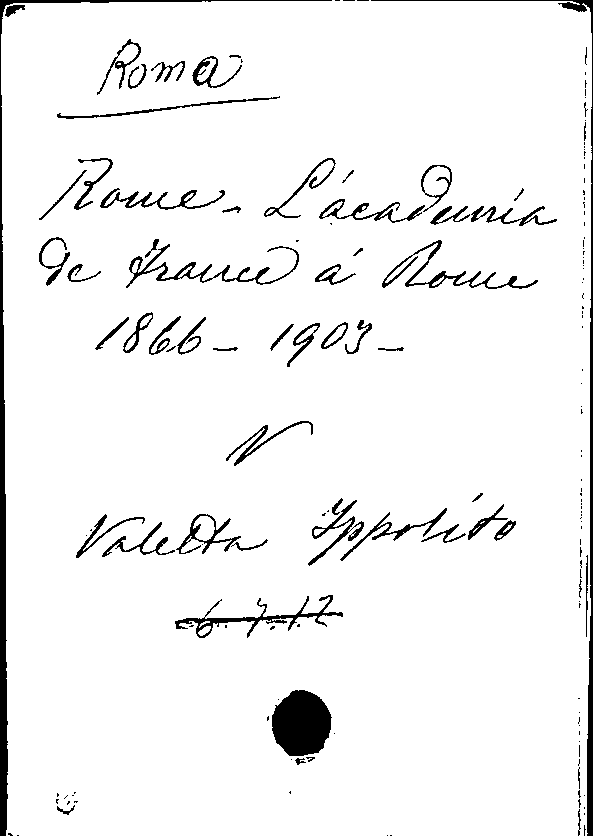 Roma
Rome - L'academia
de France á Rome
1866 - 1903 -
V
Valetta Ippolito
6.7.12